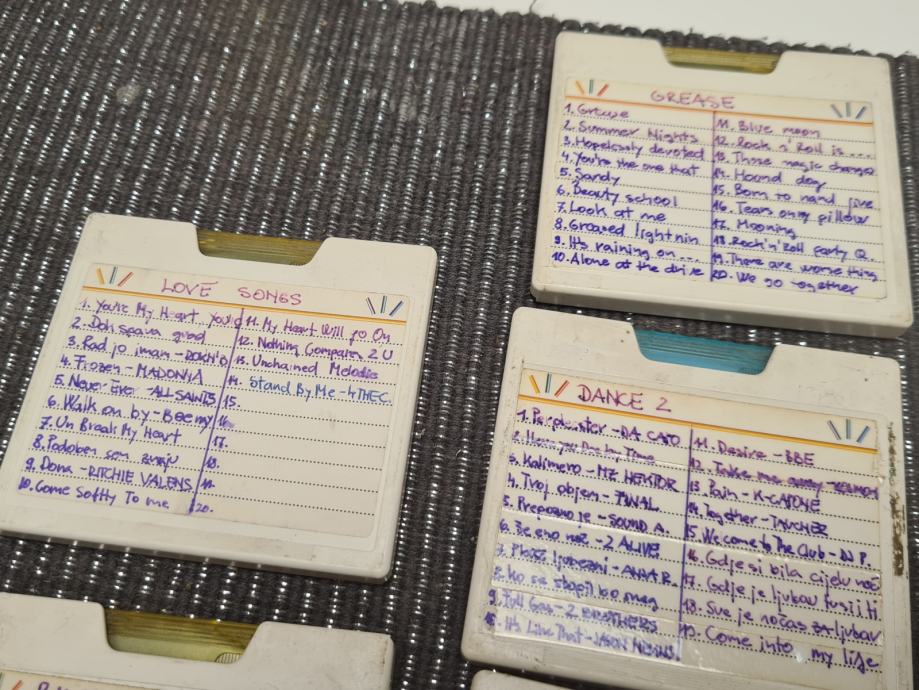 GREASE
1. Grease
2. Summer Nights
3. Hopelessly devoted
4. You're the one that
5. Sandy
6. Beauty school
7. Look at me
8. Greased lightnin
9. It's raining on...
10. Alone at the drive
11. Blue moon
12. Rock n' Roll is ...
13. Those magic changes
14. Hound dog
15. Born to hand jive
16. Tears on my pillow
17. Mooning
18. Rock'n'Roll Party Q.
19. There are worse thing
20. We go together
LOVE SONGS
1. You're My Heart, You're
2. Doh seava good
3. Rad jo iman -
4. Frozen - MADONNA
5. Never Ever - ALL SAINTS
6. Walk on by - Beemy
7. Un Break My Heart
8. Podoben sem zmaju
9. Dona - RITCHIE VALENS
10. Come Softly To me
11. My Heart Will go On
12. Nothing Compares 2 U
13. Unchained Melodie
14. Stand By Me - 4 THE C.
15.
16.
17.
18.
19.
20.
DANCE 2
1. - DA CATO
2. by Time
3. Kalimero - MZ HEKTOR
4. Tvoj objem -
5. Preposno je - SOUND A.
6. Še eno noč - 2 ALIVE
7. ljubezni -
8. Ko se stopil bo mag
9. Full Gas - 2 BROTHERS
10. It's Like That - JASON NEVINS
11. Desire - BBE
12. Take me away -
13. Rain - K-CAPONE
14. Together - TAUCHER
15. Welcome to The Club - DJ P.
16. Gdje si bila cijelu noć
17. Gdje je ljubav tusi i ti
18. Sve je nočas za ljubav
19. Come into my life